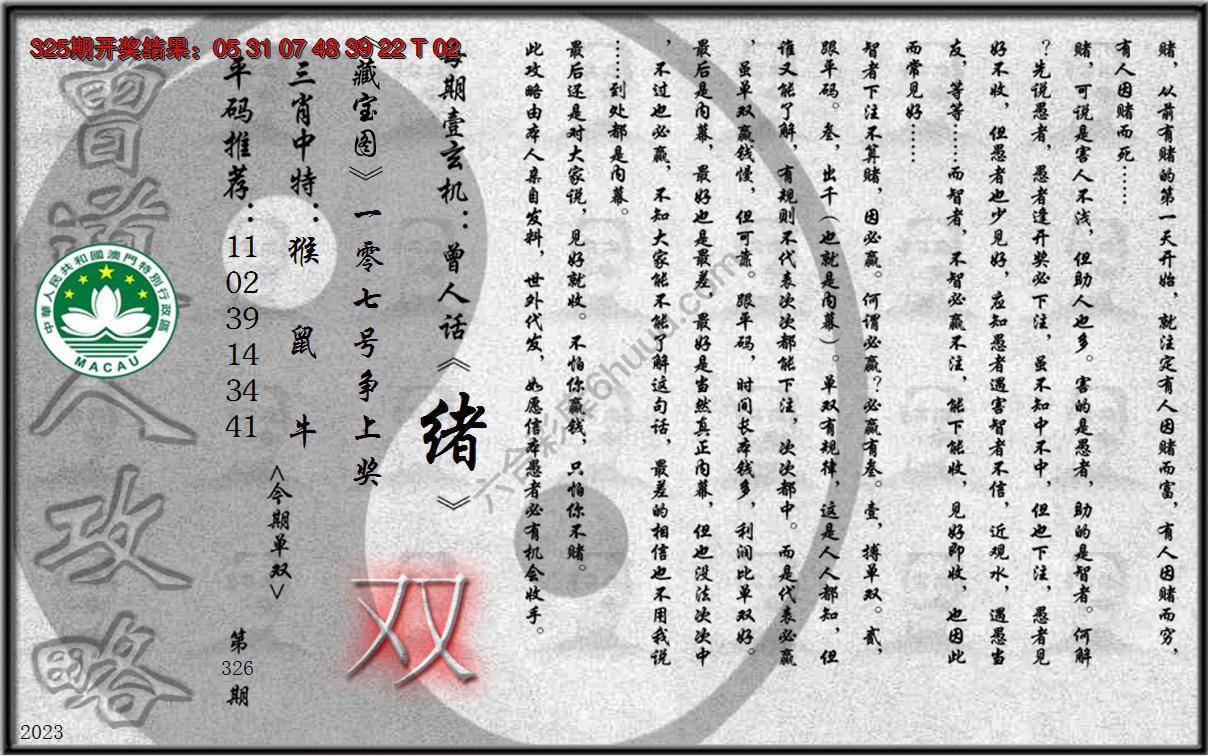 325期开奖结果：05 31 07 48 39 22 T 02
赌，从前有赌的第一天开始，就注定有人因赌而富，有人因赌而穷，
有人因赌而死……
赌，可说是害人不浅，但助人也多。害的是愚者，助的是智者。何解
？先说愚者，愚者逢开奖必下注，虽不知中不中，但也下注，愚者见
好不收，但愚者也少见好，应知愚者遇害智者不信，近观水，遇愚当
友，等等……而智者，不智必赢不注，能下能收，见好即收，也因此
而常见好……
智者下注不算赌，因必赢。何谓必赢？必赢有叁。壹，搏单双。贰，
跟平码。叁，出千（也就是内幕）。单双有规律，这是人人都知，但
谁又能了解，有规则不代表次次都能下注，次次都中。而是代表必赢
，虽单双赢钱慢，但可靠。跟平码，时间长本钱多，利润比单双好。
最后是内幕，最好也是最差，最好是当然真正内幕，但也没法次次中
，不过也必赢，不知大家能不能了解这句话，最差的相信也不用我说
……到处都是内幕。
最后还是对大家说，见好就收。不怕你赢钱，只怕你不赌。
此攻略由本人亲自发料，世外代发，如愿信本愚者必有机会收手。
每期壹玄机：曾人话《绪》
《藏宝图》一零七号争上奖
双
三肖中特：猴 鼠 牛
<今期单双>
平码推荐：11 02 39 14 34 41
第326期
曾道人攻略
中華人民共和國澳門特別行政區
MACAU
2023